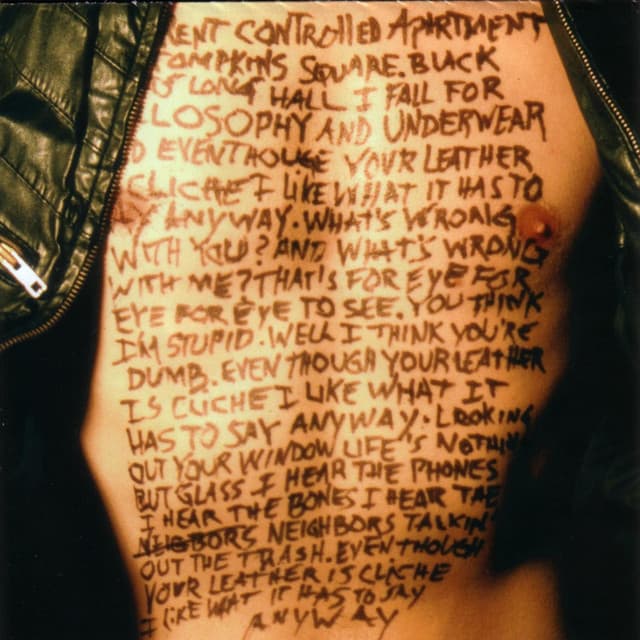 RENT CONTROLLED APARTMENT
OMPKINS SQUARE. BUCK
LONG HALL I FALL FOR
LOSOPHY AND UNDERWEAR
EVENTHOUGE YOUR LEATHER
CLICHE I LIKE WHAT IT HAS TO
ANYWAY. WHAT'S WRONG
WITH YOU? AND WHAT'S WRONG
WITH ME? THAT IS FOR EYE FOR
EYE FOR EYE TO SEE. YOU THINK
IM STUPID. WELL I THINK YOU'RE
DUMB. EVEN THOUGH YOUR LEATHER
IS CLICHE I LIKE WHAT IT
HAS TO SAY ANYWAY. LOOKING
OUT YOUR WINDOW LIFE'S NOTHIN
BUT GLASS I HEAR THE PHONES
I HEAR THE BONES I HEAR THE
NEIGHBORS TALKIN'
OUT THE TRASH. EVEN THOUGH
YOUR LEATHER IS CLICHE
I LIKE WHAT IT HAS TO SAY
ANYWAY